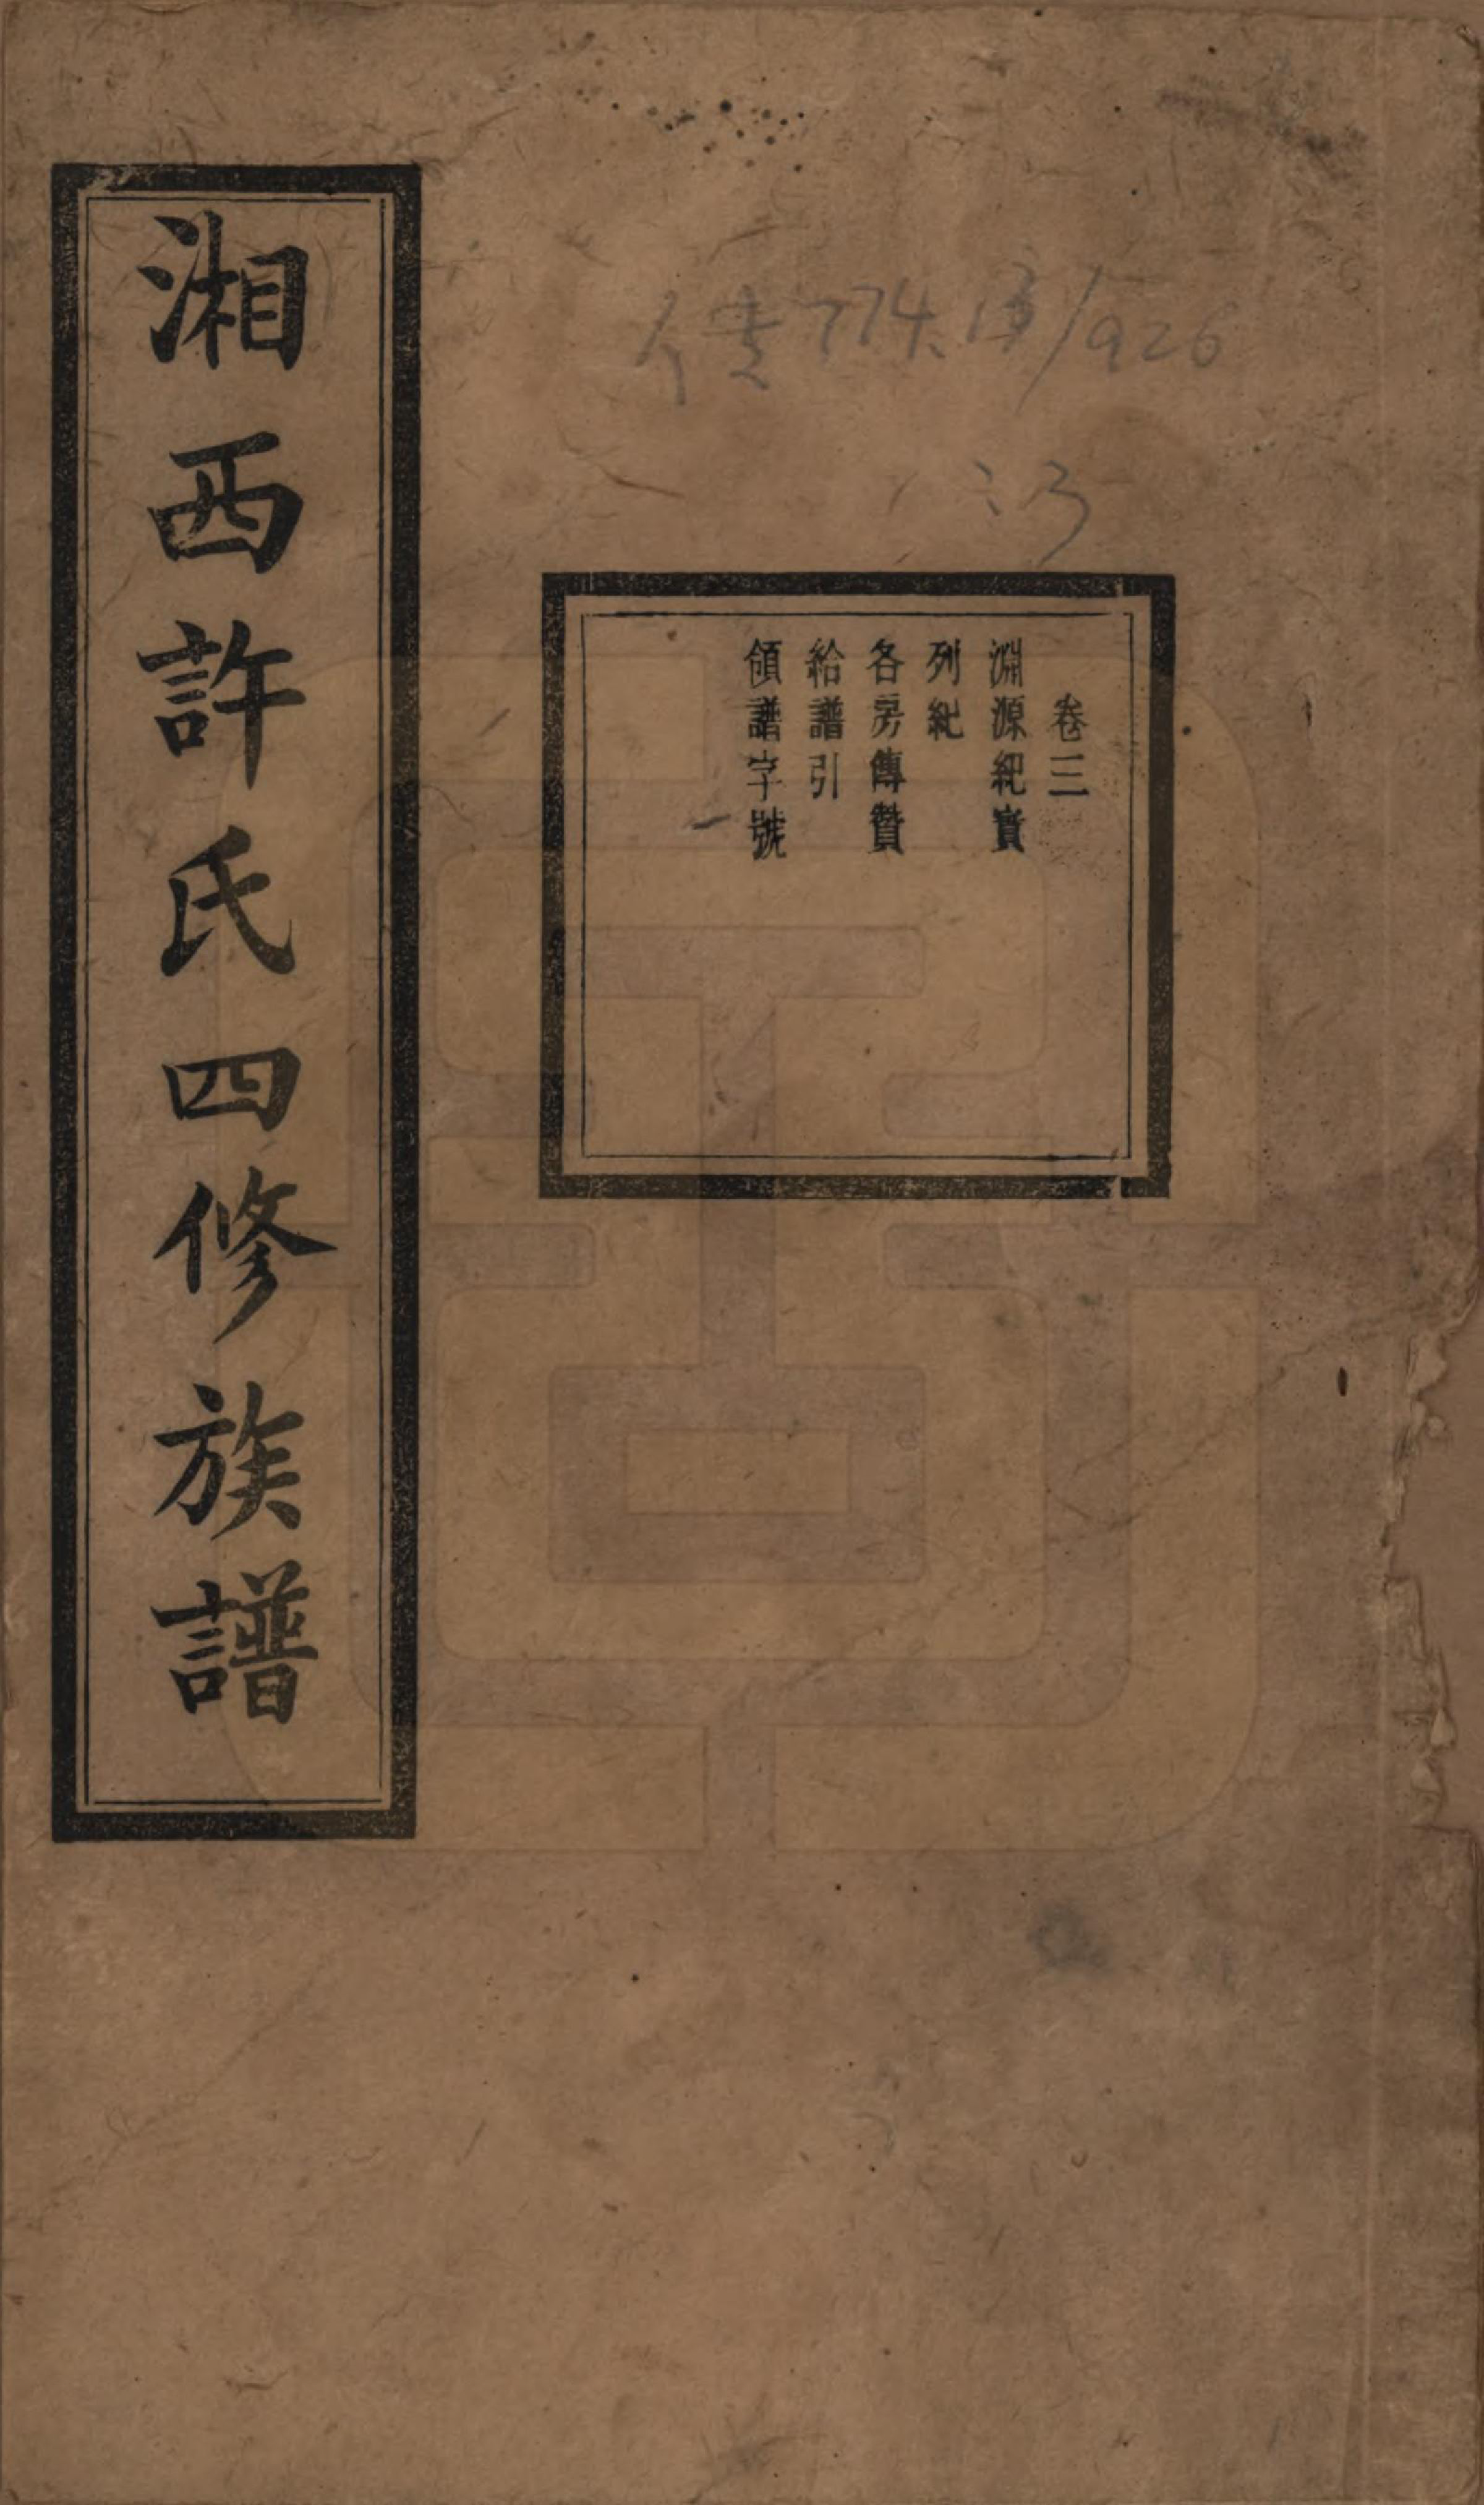 卷三
淵源紀實
列紀
各房傳贊
給譜引
領譜字號
湘西許氏四修族譜
774
/926
:3